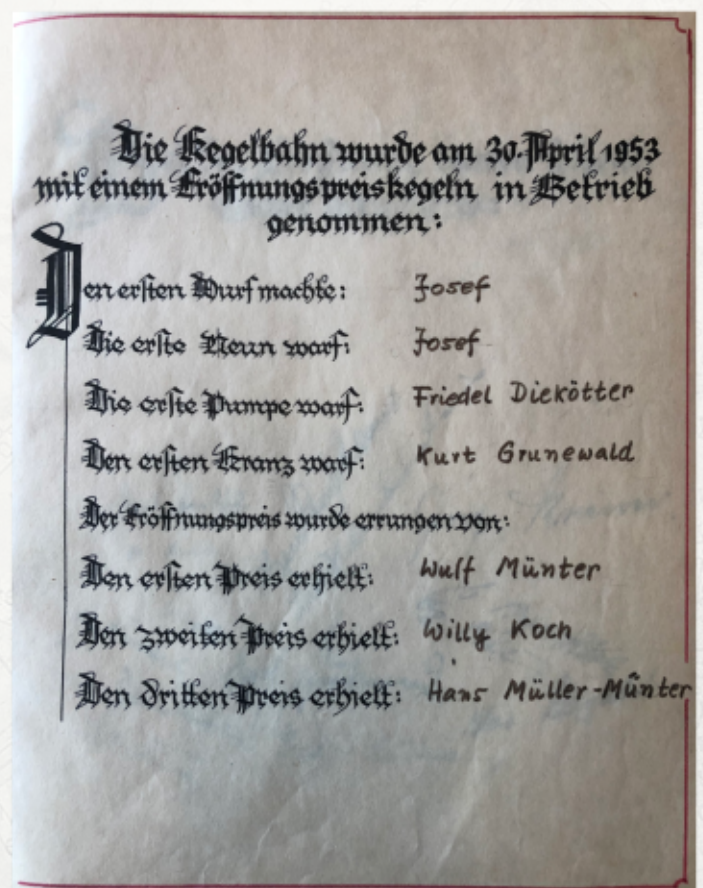 Die Kegelbahn wurde am 30. April 1953
mit einem Eröffnungspreiskegeln in Betrieb
genommen:
Den ersten Wurf machte: Josef
Die erste Neun warf: Josef
Die erste Pumpe warf: Friedel Diekötter
Den ersten Kranz warf: Kurt Grunewald
Der Eröffnungspreis wurde errungen von:
Den ersten Preis erhielt: Wulf Münter
Den zweiten Preis erhielt: Willy Koch
Den dritten Preis erhielt: Hans Müller-Münter